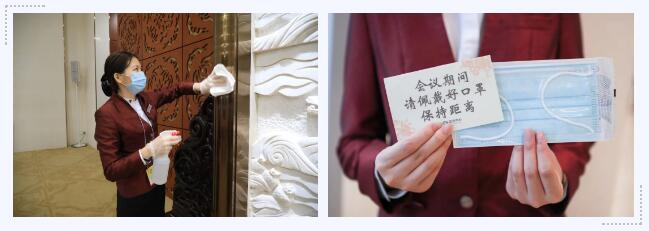 会议期间
请佩戴好口罩
保持距离